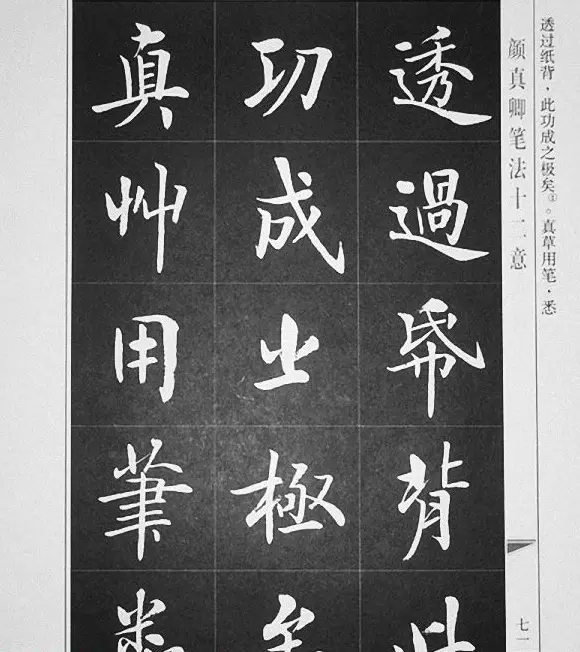 透过纸背，此功成之极矣①。真草用笔，悉
颜真卿笔法十二意
七一
透過帋背此
功成㞢極矣
真艸用筆悉